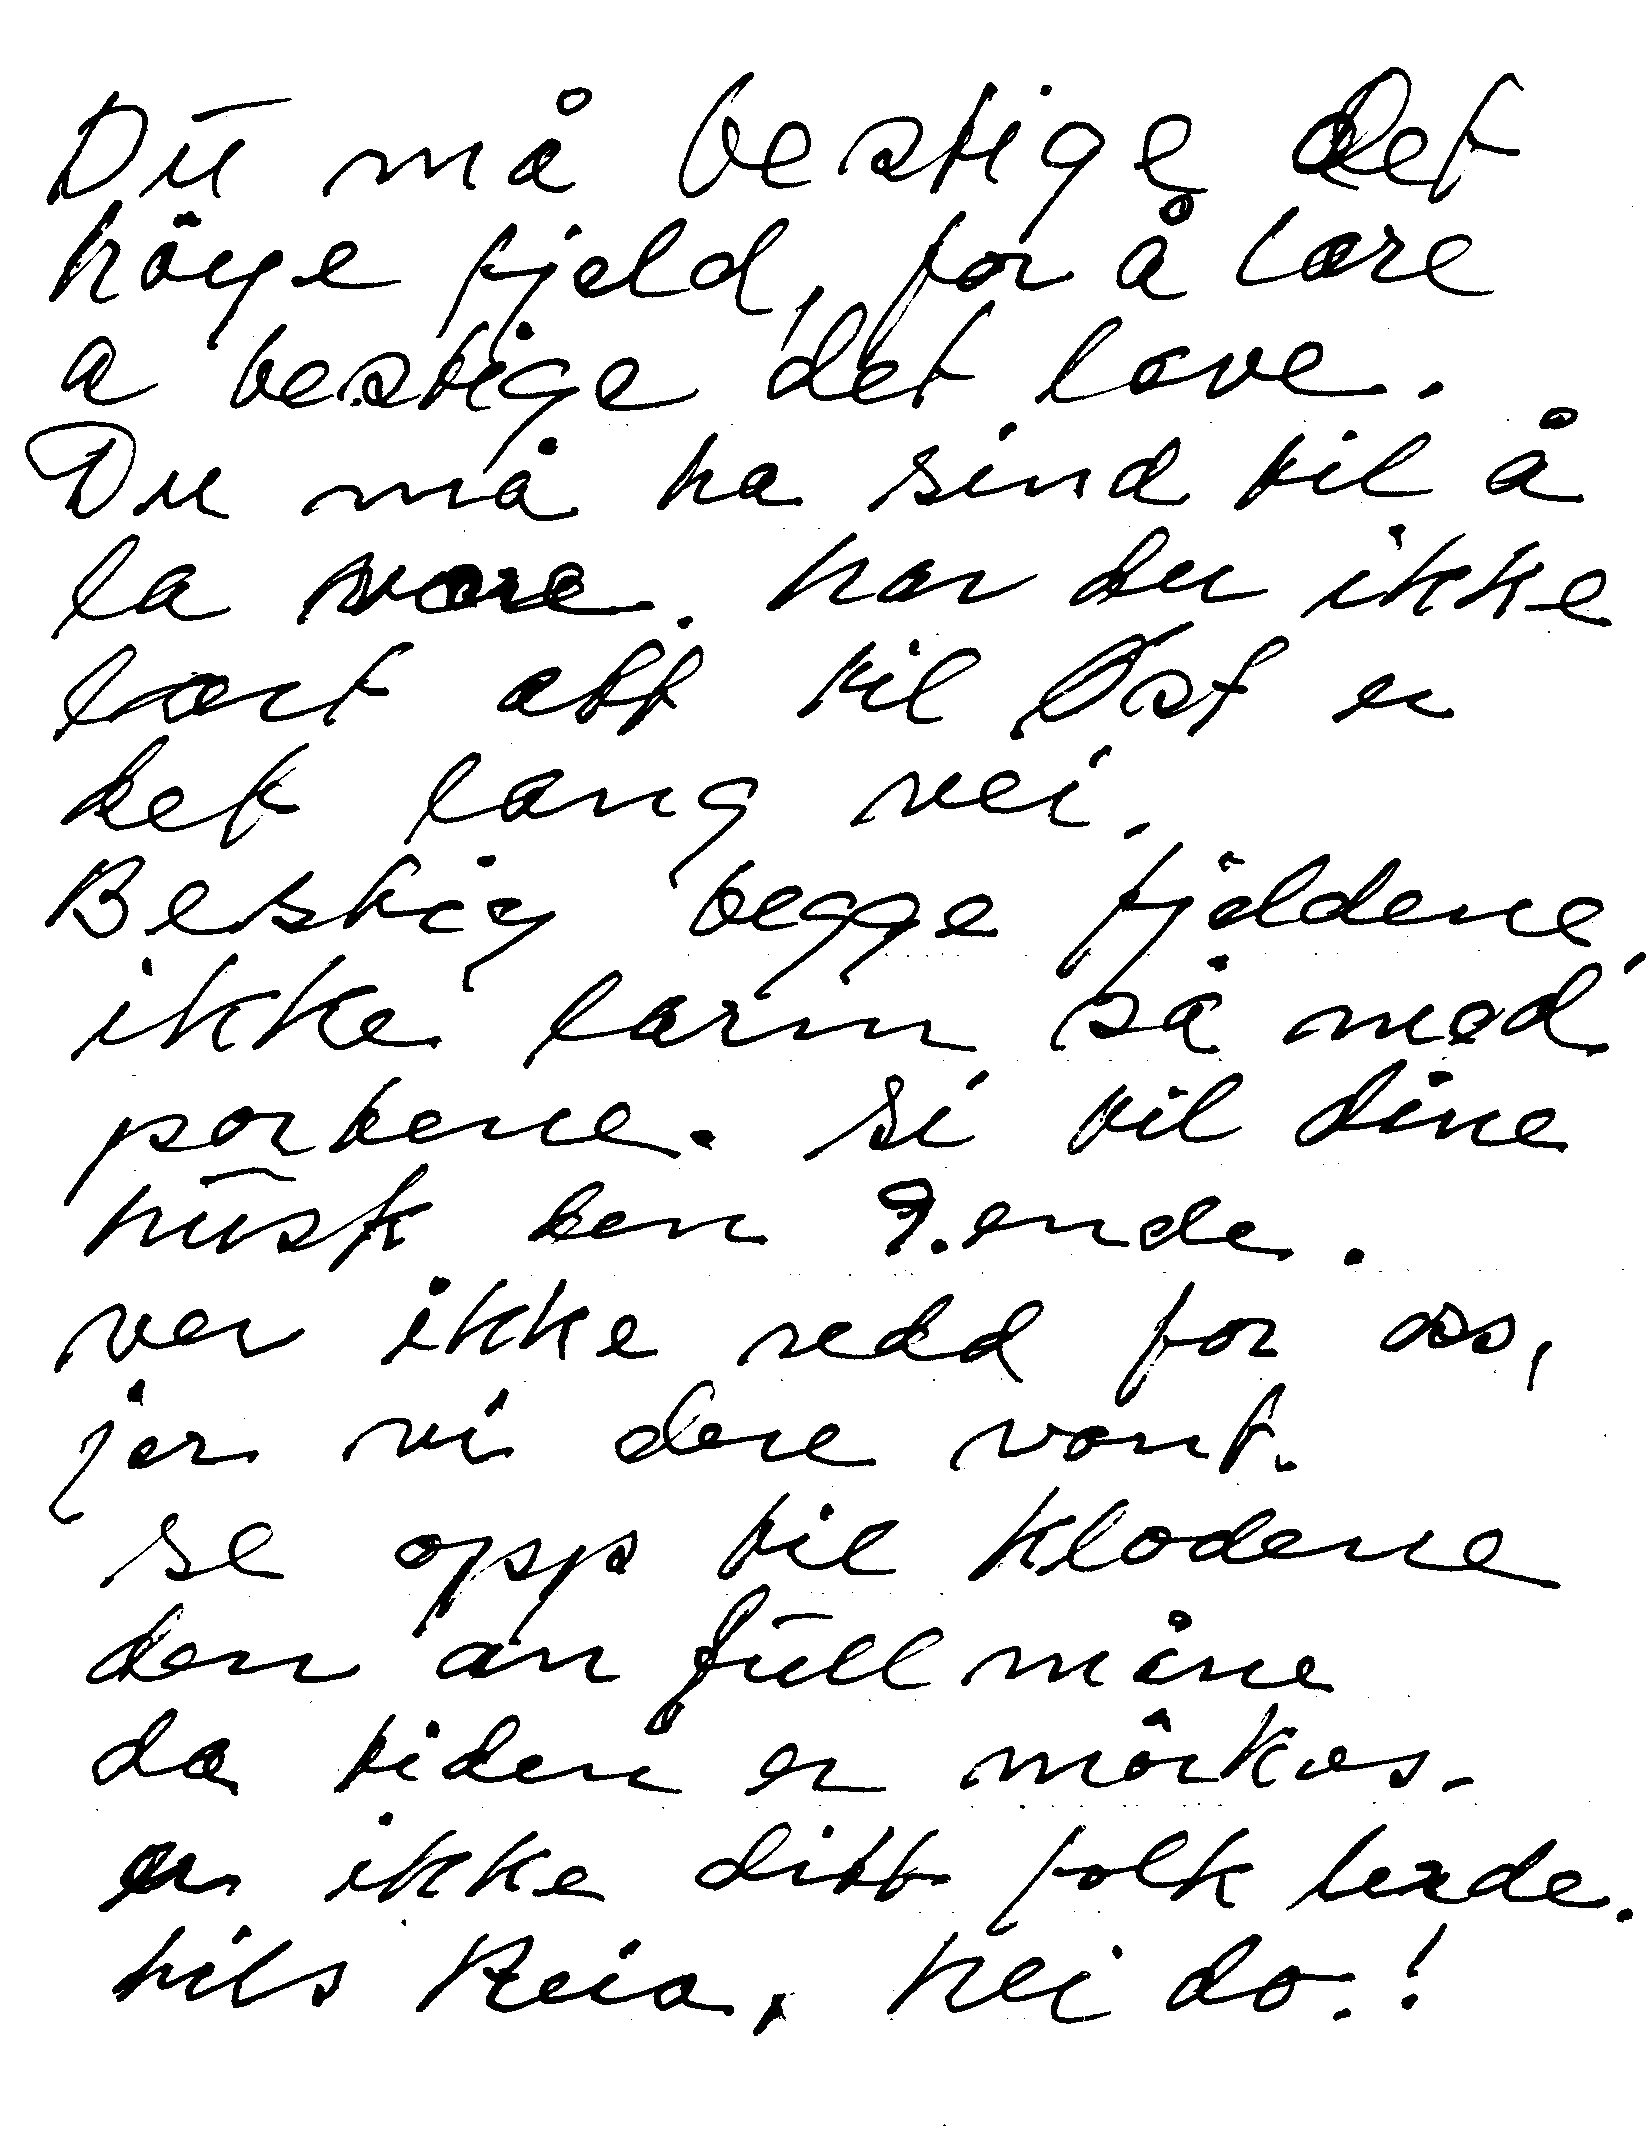 Du må bestige det
höye fjeld, for å lære
a bestige det lave.
Du må ha sind til å
la være. har du ikke
lært att til Øst er
det lang vei.
Bestig begge fjeldene,
ikke larm så med
portene. si til dine
husk den 9.ende.
ver ikke redd for oss,
jør vi dere vont.
se opp til klodene
den an full måne
da tiden er mörkes.
er ikke ditt folk
hils Reia, hei do.!